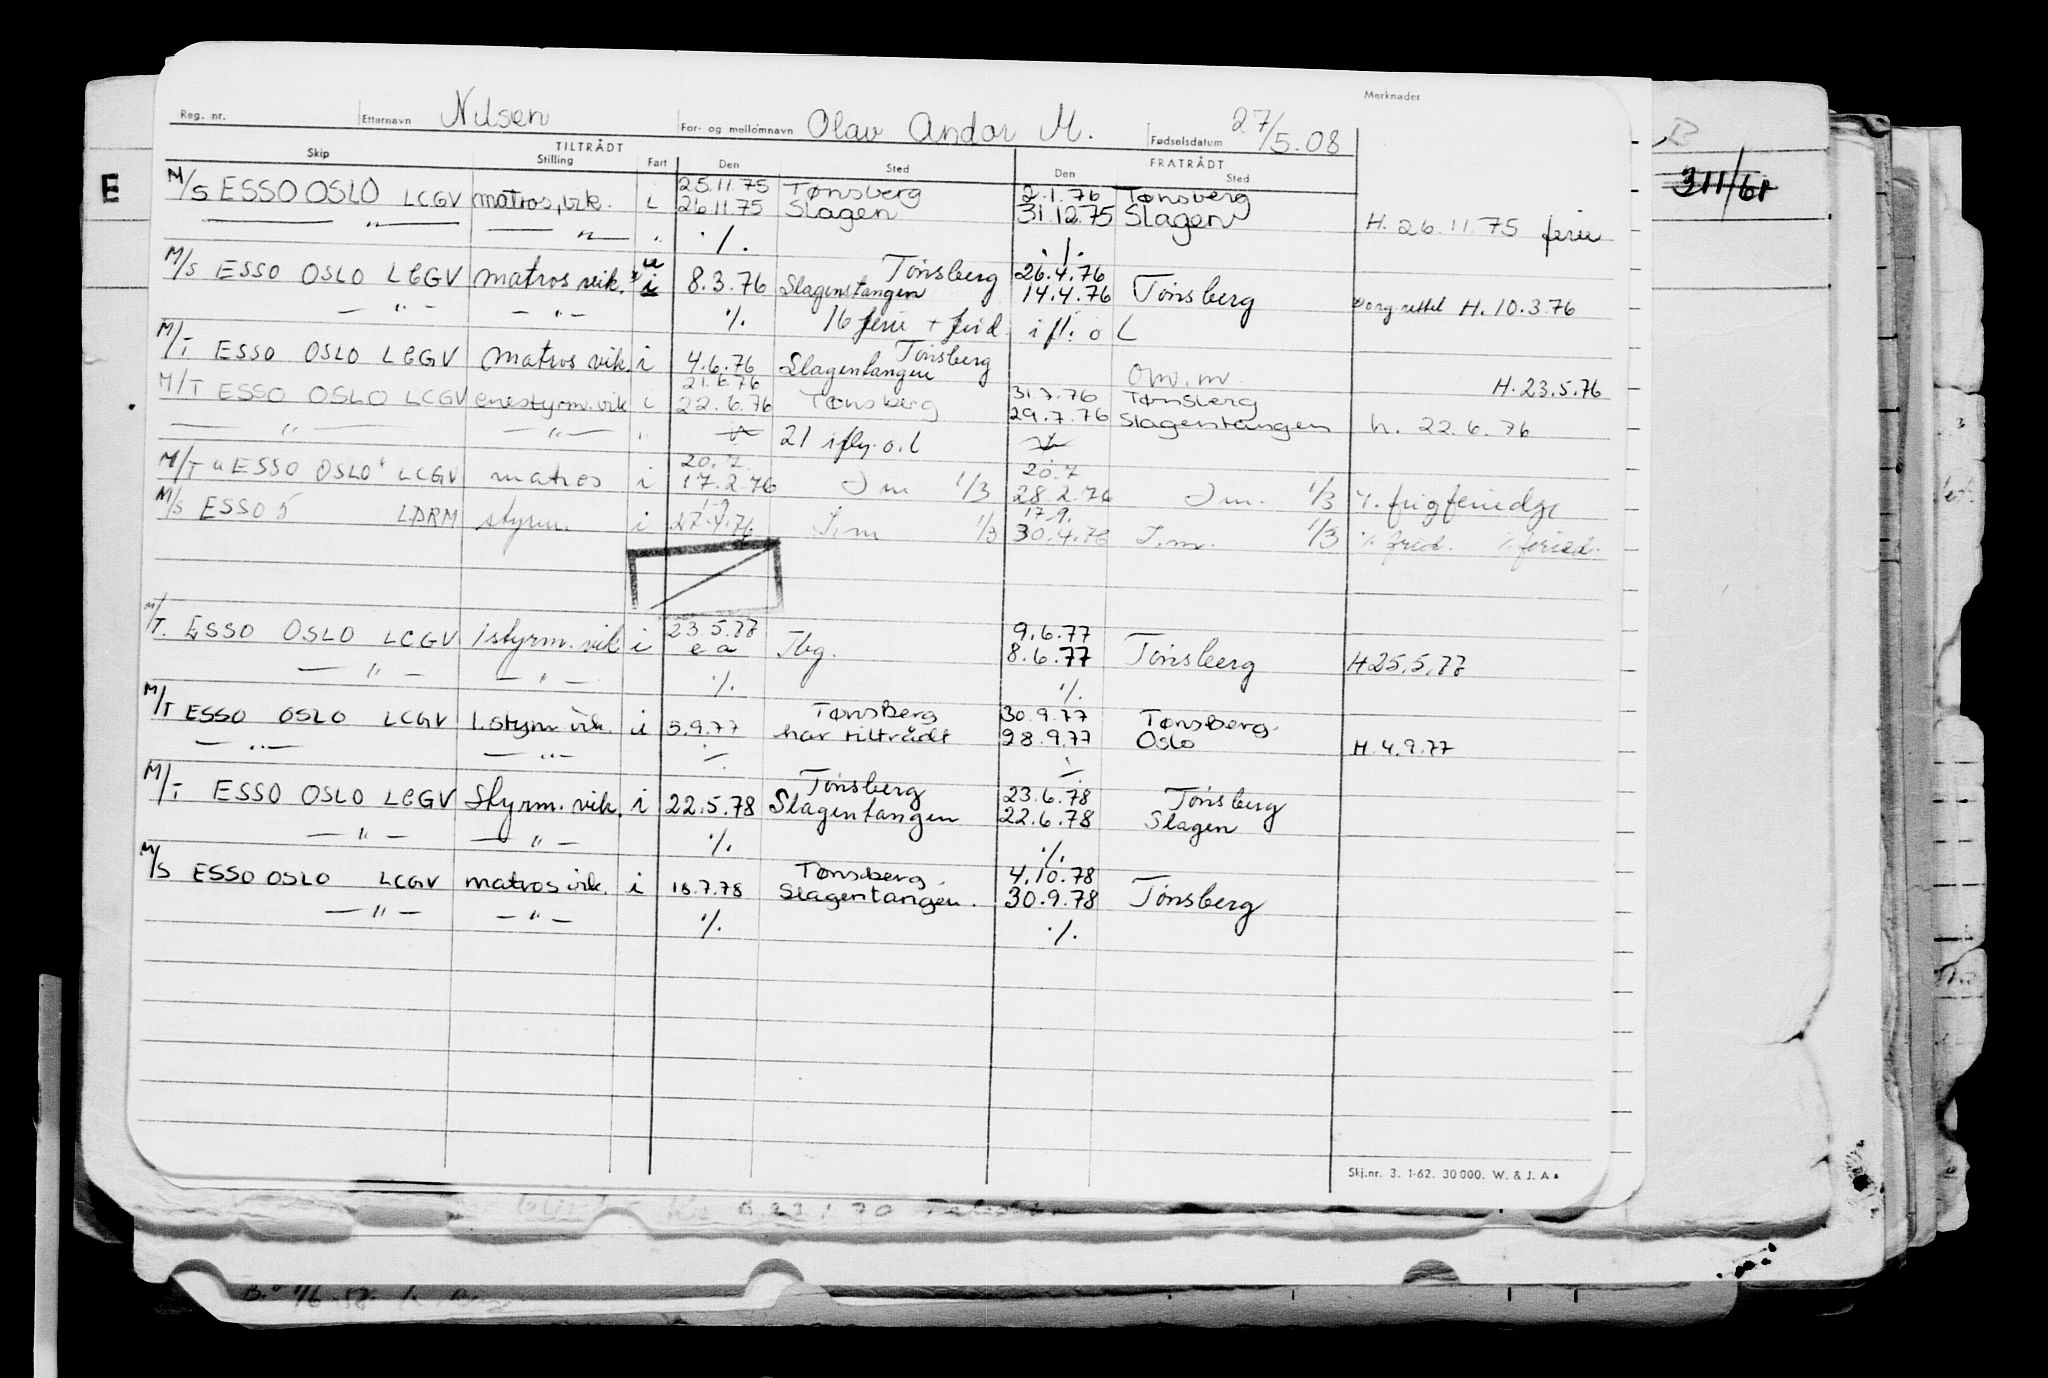 Merknader
Reg. nr. Etternavn Nilsen For- og mellomnavn Olav Andor M. Fødselsdatum 27/5.08
TILTRÅDT FRATRÅDT
Skip Stilling Fart Den Sted Den Sted
25.11.75 Tønsberg 2.1.76 Tønsberg
M/S ESSO OSLO LCGV matros, vik. i 26.11.75 Slagen 31.12.75 Slagen H. 26.11.75 ferie
— " — — " — " ./. ./.
u Tønsberg 26.4.76
M/S ESSO OSLO LCGV matros vik. i 8.3.76 Slagenstangen 14.4.76 Tønsberg H. 10.3.76
— " — — " — ./. 16 ferie + frid. i fl. o L
Tønsberg
M/T ESSO OSLO LCGV matros vik. i 4.6.76 Slagentangen Omv. mv. H. 23.5.76
21.6.76 31.7.76 Tønsberg
M/T ESSO OSLO LCGV enestyrm. vik i 22.6.76 Tønsberg 29.7.76 Slagentangen h. 22.6.76
— " — — " — " 21 o.l
20.7 20.7
M/T "ESSO OSLO" LCGV matros i 17.2.76 1/3 28.2.76 1/3
17.9.
M/S ESSO 5 LDRM styrm. i 27.4.76 1/3 30.4.76 1/3 ./. frid. ./. feried.
23.5.77 9.6.77
M/T. ESSO OSLO LCGV 1 styrm. vik i e a Tbg. 8.6.77 Tønsberg H 25.5.77
— " — — " — ./. ./.
Tønsberg 30.9.77 Tønsberg
M/T ESSO OSLO LCGV 1. styrm vik. i 5.9.77 har tiltrådt 28.9.77 Oslo H. 4.9.77
— " — — " — ./. ./.
Tønsberg 23.6.78 Tønsberg
M/T ESSO OSLO LCGV Styrm. vik. i 22.5.78 Slagentangen 22.6.78 Slagen
— " — — " — ./. ./.
Tønsberg 4.10.78
M/S ESSO OSLO LCGV matros vik. i 18.7.78 Slagentangen. 30.9.78 Tønsberg
— " — — " — ./. ./.
Skj.nr. 3. 1-62. 30 000. W. & J. A
E
311/61